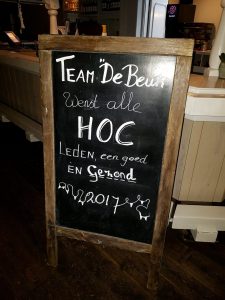 TEAM "De Beun"
Wenst alle
HOC
LEDEN, een goed
EN Gezond
2017